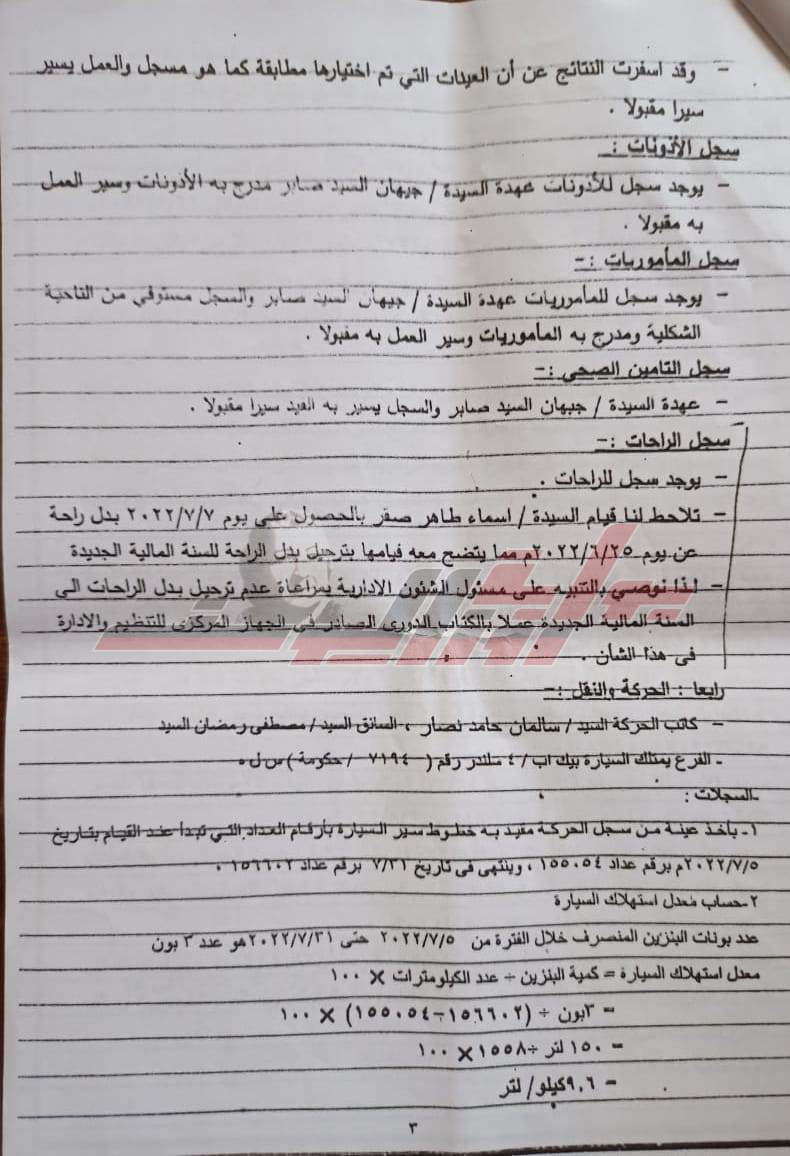 - وقد اسفرت النتائج عن أن العينات التي تم اختيارها مطابقة كما هو مسجل والعمل يسير
سيرا مقبولا .
سجل الأذونات :
- يوجد سجل للأذونات عهدة السيدة / جيهان السيد صابر مدرج به الأذونات وسير العمل
به مقبولا .
سجل المأموريات :-
- يوجد سجل للمأموريات عهدة السيدة / جيهان السيد صابر والسجل مستوفي من الناحية
الشكلية ومدرج به المأموريات وسير العمل به مقبولا .
سجل التامين الصحى :-
- عهدة السيدة / جيهان السيد صابر والسجل يسير به القيد سيرا مقبولا .
سجل الراحات :-
- يوجد سجل للراحات .
- تلاحظ لنا قيام السيدة / اسماء طاهر صقر بالحصول على يوم ٢٠٢٢/٧/٧ بدل راحة
عن يوم ٢٠٢٢/٦/٢٥م مما يتضح معه قيامها بترحيل بدل الراحة للسنة المالية الجديدة
- لذا نوصي بالتنبيه على مسئول الشئون الادارية بمراعاة عدم ترحيل بدل الراحات الى
السنة المالية الجديدة عملا بالكتاب الدورى الصادر فى الجهاز المركزى للتنظيم والادارة
فى هذا الشأن .
رابعا : الحركة والنقل :-
- كاتب الحركة السيد / سالمان حامد نصار ، السائق السيد / مصطفى رمضان السيد
- الفرع يمتلك السيارة بيك اب / ٤ سلندر رقم ( ٧١٩٤ / حكومة ) س ل ه
-السجلات :
١- بأخذ عينة من سجل الحركة مقيد به خطوط سير السيارة بأرقام العداد التي تبدأ عند القيام بتاريخ
٢٠٢٢/٧/٥م برقم عداد ١٥٥٠٥٤ ، وينتهى فى تاريخ ٧/٣١ برقم عداد ١٥٦٦٠٢ .
٢-حساب معدل استهلاك السيارة
عدد بونات البنزين المنصرف خلال الفترة من ٢٠٢٢/٧/٥ حتى ٢٠٢٢/٧/٣١هو عدد ٣ بون
معدل استهلاك السيارة = كمية البنزين ÷ عدد الكيلومترات × ١٠٠
= ٣بون ÷ (١٥٦٦٠٢-١٥٥٠٥٤) × ١٠٠
= ١٥٠ لتر ÷١٥٥٨×١٠٠
= ٩,٦كيلو/ لتر
٣